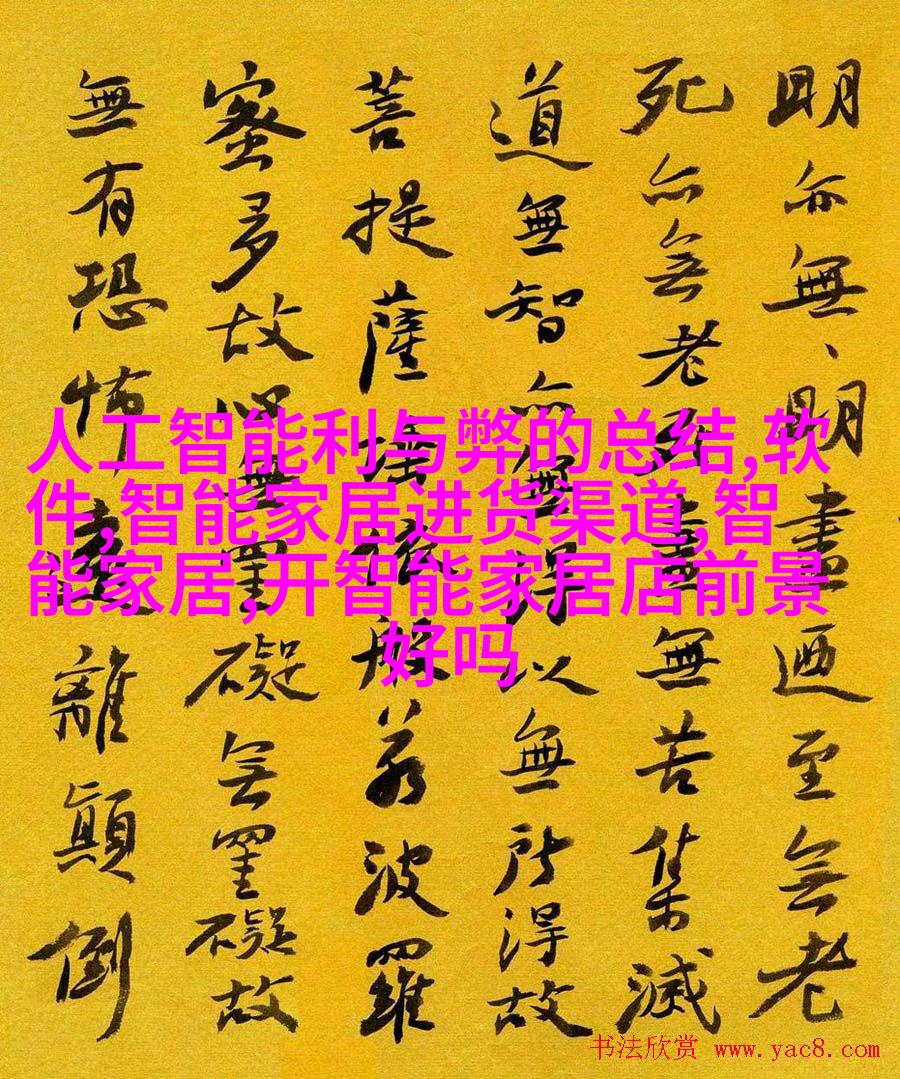 明亦無、明盡迺至無老
死亦無老死盡無苦集滅
道無智亦無得以無所得故
菩提薩埵依般若波羅
蜜多故心無罣礙無罣礙故
無有恐怖遠離顛倒
人工智能利与弊的总结,软
件,智能家居进货渠道,智
能家居,开智能家居店前景
好吗
书法欣赏 www.yac8.com